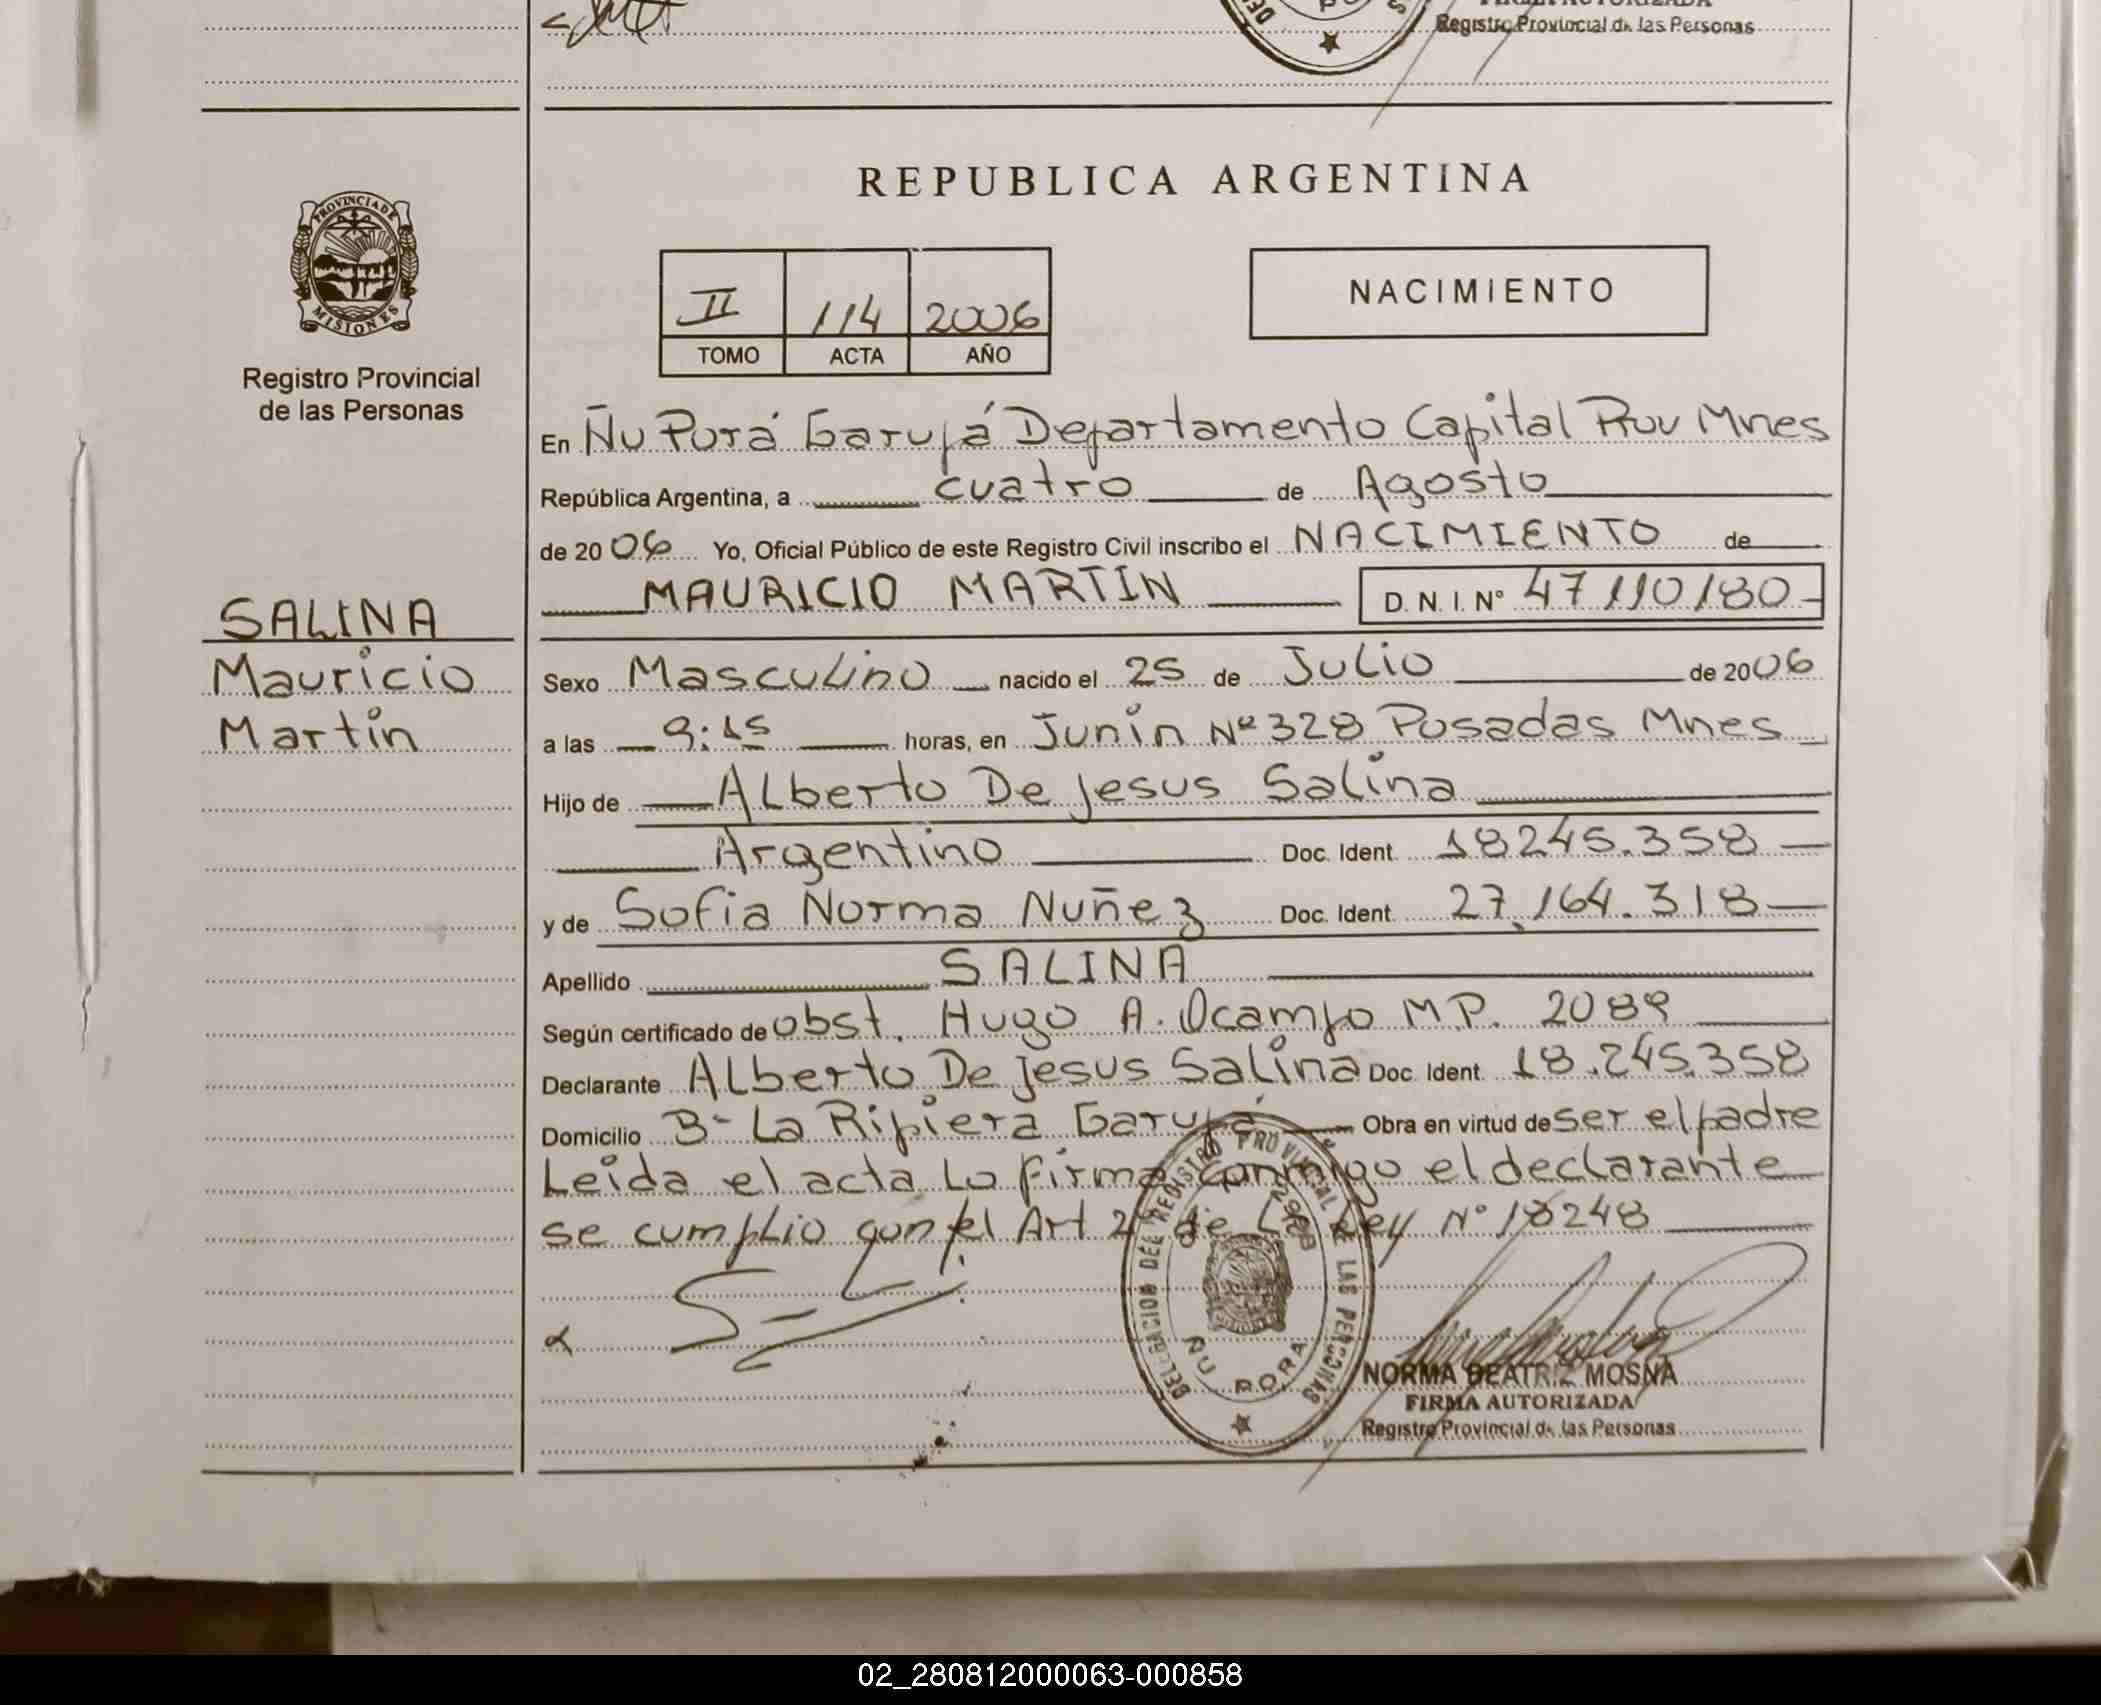 Registro Provincial de las Personas
REPUBLICA ARGENTINA
PROVINCIA DE
MISIONES
Registro Provincial
de las Personas
II 114 2006
TOMO ACTA AÑO
NACIMIENTO
En Ñu Porá Garupá Departamento Capital Prov Mnes
República Argentina, a cuatro de Agosto
de 2006 Yo, Oficial Público de este Registro Civil inscribo el NACIMIENTO de
MAURICIO MARTIN D.N.I. Nº 47 110 180
SALINA
Mauricio
Martin
Sexo Masculino nacido el 25 de Julio de 2006
a las 9:15 horas, en Junin Nº 328 Posadas Mnes
Hijo de Alberto De Jesus Salina
Argentino Doc. Ident. 18245.358
y de Sofia Norma Nuñez Doc. Ident. 27.164.318
Apellido SALINA
Según certificado de obst. Hugo A. Ocampo M.P. 2089
Declarante Alberto De Jesus Salina Doc. Ident. 18.245.358
Domicilio Bº La Ribiera Garupá Obra en virtud de ser el padre
Leida el acta Lo firma conmigo el declarante
se cumplio con el Art 2 de La Ley Nº 18248
DELEGACION DEL REGISTRO PROVINCIAL DE LAS PERSONAS
ÑU PORA
NORMA BEATRIZ MOSNA
FIRMA AUTORIZADA
Registro Provincial de las Personas
02_280812000063-000858